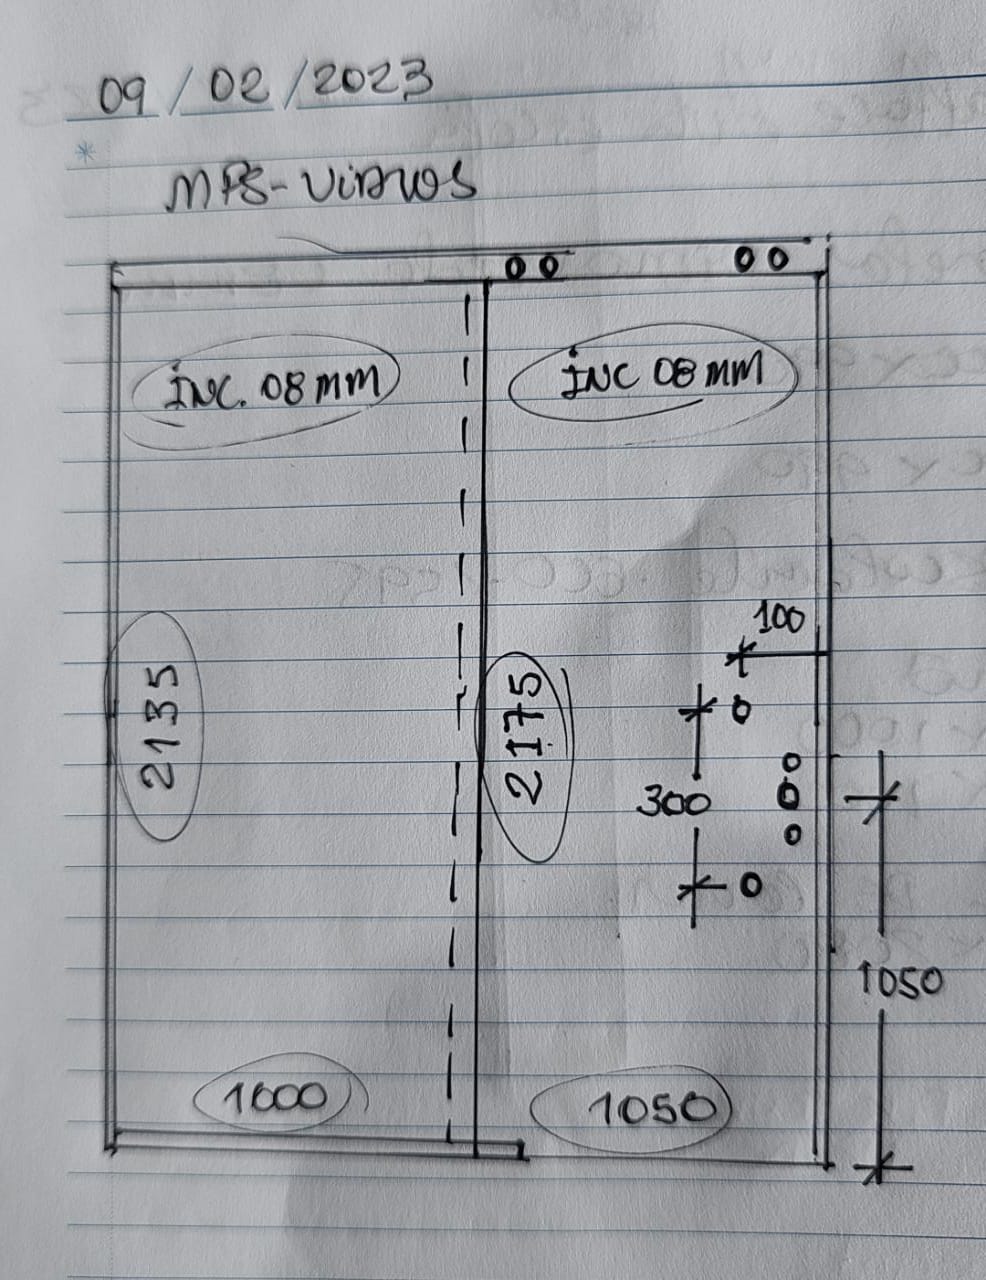 09/02/2023
*
MPS-ViDROS
INC. 08 MM
INC 08 MM
100
2135
2175
300
1050
1000
1050